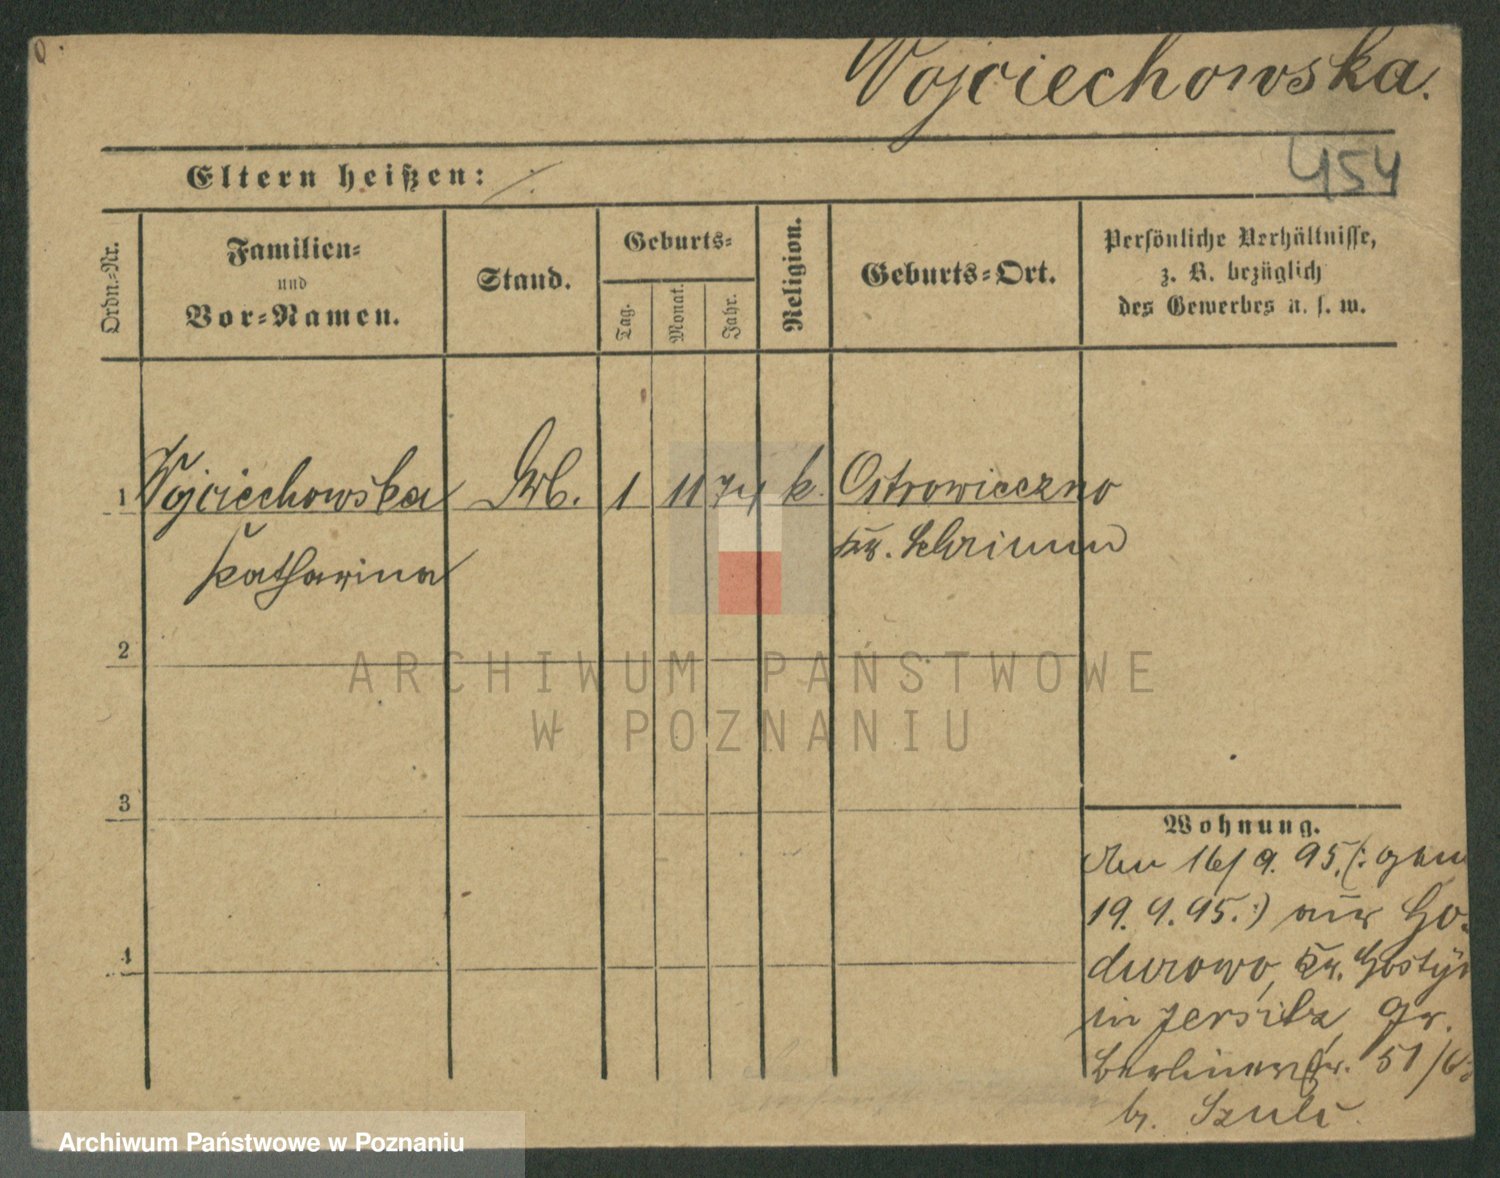 Wojciechowska.
454
Eltern heißen: /
Ordn.-Nr.
Familien-
und
Vor-Namen.
Stand.
Geburts-
Tag.
Monat.
Jahr.
Religion.
Geburts-Ort.
Persönliche Verhältnisse,
z. B. bezüglich
des Gewerbes u. s. w.
1 Wojciechowska 1 11 74 k. Ostrowieczno
Katharina Kr. Schrimm
2
3
4
Wohnung.
16/9. 95. (:
19. 9. 95. :) aus Go-
durowo, Kr. Gostyn
in Jersitz, Gr.
Berlinerstr. 51/
b. Szulc
ARCHIWUM PAŃSTWOWE
W POZNANIU
Archiwum Państwowe w Poznaniu